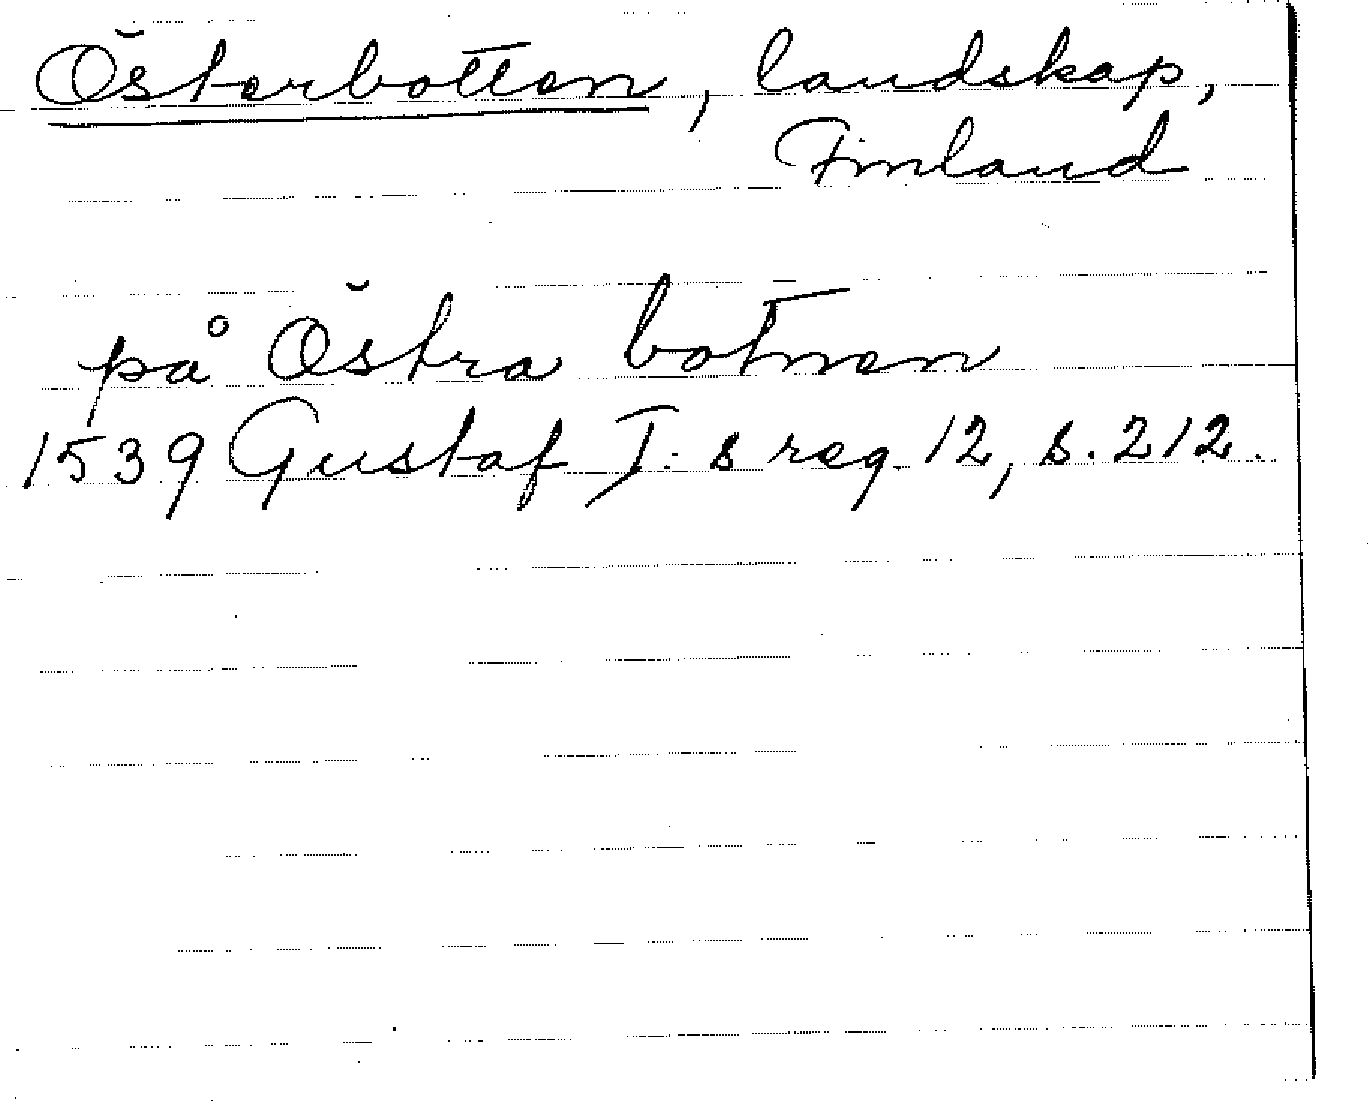 Österbotten, landskap,
Finland
på Östra botnen
1539 Gustaf I:s reg 12, s. 212.